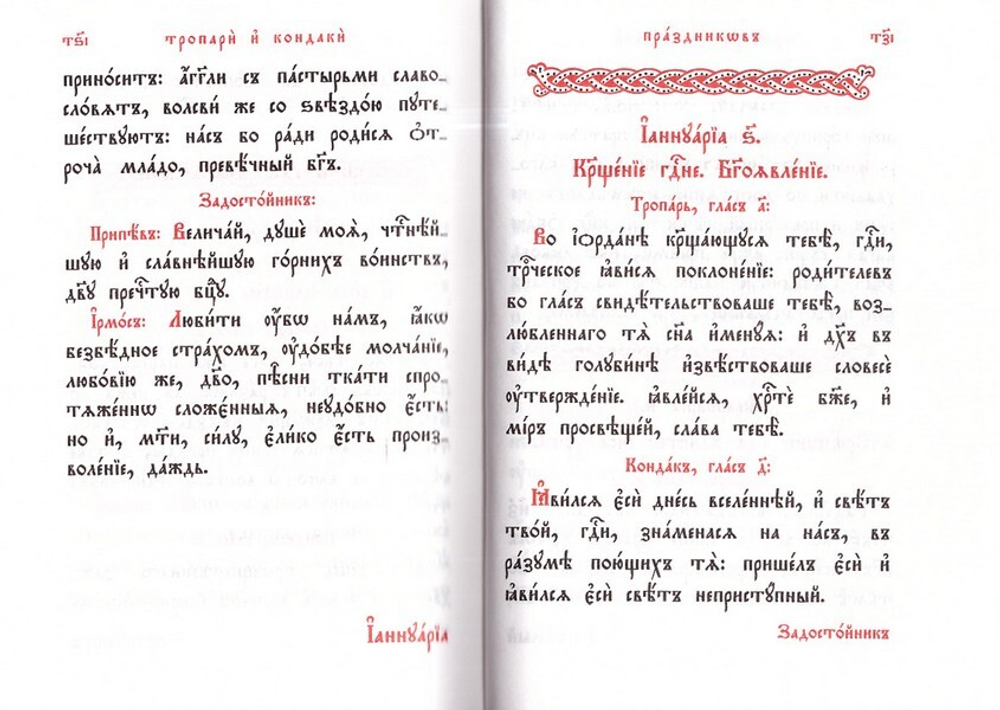 тѕ҃і
тропарѝ и҆ кондакѝ
прино́ситъ: а҆́гг҃ли съ па́стырьми славо-
сло́вятъ, волсви́ же со ѕвѣздо́ю путе-
ше́ствуютъ: на́съ бо ра́ди роди́сѧ ѻ҆т-
роча̀ мла́до, превѣ́чный бг҃ъ.
Задосто́йникъ:
Припѣ́въ: Велича́й, душѐ моѧ̀, чⷭ҇тнѣ́й-
шую и҆ сла́внѣйшую го́рнихъ во́инствъ,
дв҃у пречⷭ҇тую бц҃у.
І҆рмо́съ: Люби́ти ᲂу҆́бѡ на́мъ, ꙗ҆́кѡ
безбѣ́дное стра́хомъ, ᲂу҆до́бѣе молча́нїе,
любо́вїю же, дв҃о, пѣ̑сни тка́ти спро-
тѧже́ннѡ сложє́нныѧ, неудо́бно є҆́сть:
но и҆, мт҃и, си́лу, є҆ли́ко є҆́сть произ-
воле́нїе, да́ждь.
І҆аннуа́рїа
пра́здникѡвъ
тз҃і
І҆аннуа́рїа ѕ҃.
Крⷭ҇ще́нїе гдⷭ҇не. Бг҃оѧвле́нїе.
Тропа́рь, гла́съ а҃:
Во і҆ѻрда́нѣ крⷭ҇ща́ющусѧ тебѣ̀, гдⷭ҇и,
трⷪ҇ческое ꙗ҆ви́сѧ поклоне́нїе: роди́телевъ
бо гла́съ свидѣ́тельствоваше тебѣ̀, воз-
лю́бленнаго тѧ̀ сн҃а и҆мену́ѧ: и҆ дх҃ъ въ
ви́дѣ голуби́нѣ и҆звѣ́ствоваше словесѐ
ᲂу҆твержде́нїе. ꙗ҆вле́йсѧ, хрⷭ҇тѐ бж҃е, и҆
мі́ръ просвѣще́й, сла́ва тебѣ̀.
Конда́къ, гла́съ д҃:
Ꙗ҆ви́лсѧ є҆сѝ дне́сь вселе́ннѣй, и҆ свѣ́тъ
тво́й, гдⷭ҇и, зна́менасѧ на на́съ, въ
ра́зумѣ пою́щихъ тѧ̀: прише́лъ є҆сѝ и҆
ꙗ҆ви́лсѧ є҆сѝ свѣ́тъ непристу́пный.
Задосто́йникъ